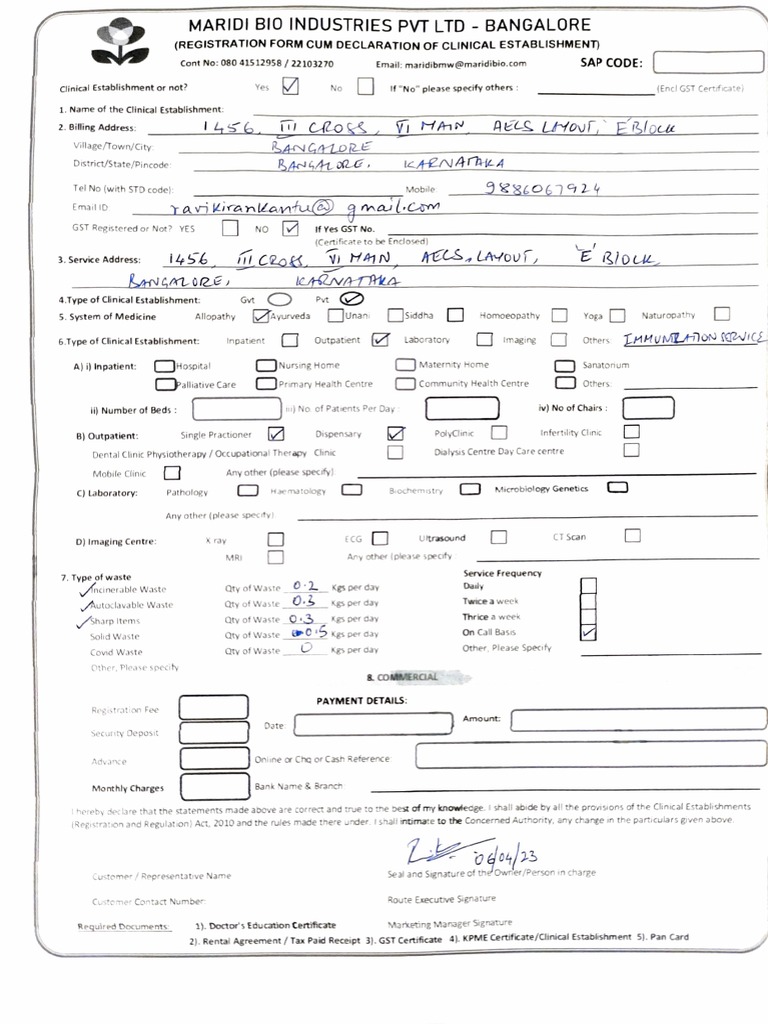 MARIDI BIO INDUSTRIES PVT LTD - BANGALORE
(REGISTRATION FORM CUM DECLARATION OF CLINICAL ESTABLISHMENT)
Cont No: 080 41512958 / 22103270 Email: maridibmw@maridibio.com SAP CODE:
Clinical Establishment or not? Yes No If "No" please specify others : (Encl GST Certificate)
1. Name of the Clinical Establishment:
2. Billing Address: 1456, III CROSS, VI MAIN, AECS LAYOUT, 'E' BLOCK
Village/Town/City: BANGALORE
District/State/Pincode: BANGALORE, KARNATAKA
Tel No (with STD code): Mobile: 9886067924
Email ID ravikirankantu@gmail.com
GST Registered or Not? YES NO If Yes GST No.
(Certificate to be Enclosed)
3. Service Address: 1456, III CROSS, VI MAIN, AECS, LAYOUT, 'E' BLOCK,
BANGALORE, KARNATAKA
4.Type of Clinical Establishment: Gvt Pvt
5. System of Medicine Allopathy Ayurveda Unani Siddha Homoeopathy Yoga Naturopathy
6.Type of Clinical Establishment: Inpatient Outpatient Laboratory Imaging Others IMMUNIZATION SERVICE
A) i) Inpatient: Hospital Nursing Home Maternity Home Sanatorium
Palliative Care Primary Health Centre Community Health Centre Others:
ii) Number of Beds : iii) No. of Patients Per Day : iv) No of Chairs :
B) Outpatient: Single Practioner Dispensary PolyClinic Infertility Clinic
Dental Clinic Physiotherapy / Occupational Therapy Clinic Dialysis Centre Day Care centre
Mobile Clinic Any other (please specify)
C) Laboratory: Pathology Haematology Biochemistry Microbiology Genetics
Any other (please specify):
D) Imaging Centre: X ray ECG Ultrasound CT Scan
MRI Any other (please specify
7. Type of waste Service Frequency
Incinerable Waste Qty of Waste 0.2 Kgs per day Daily
Autoclavable Waste Qty of Waste 0.3 Kgs per day Twice a week
Sharp Items Qty of Waste 0.3 Kgs per day Thrice a week
Solid Waste Qty of Waste 0.5 Kgs per day On Call Basis
Covid Waste Qty of Waste 0 Kgs per day Other, Please Specify
Other, Please specify
8. COMMERCIAL
PAYMENT DETAILS:
Registration Fee
Date: Amount:
Security Deposit
Advance Online or Chq or Cash Reference:
Monthly Charges Bank Name & Branch:
I hereby declare that the statements made above are correct and true to the best of my knowledge. I shall abide by all the provisions of the Clinical Establishments
(Registration and Regulation) Act, 2010 and the rules made there under. I shall intimate to the Concerned Authority, any change in the particulars given above.
06/04/23
Customer / Representative Name Seal and Signature of the Owner/Person in charge
Customer Contact Number: Route Executive Signature
Required Documents: 1). Doctor's Education Certificate Marketing Manager Signature
2). Rental Agreement / Tax Paid Receipt 3). GST Certificate 4). KPME Certificate/Clinical Establishment 5). Pan Card